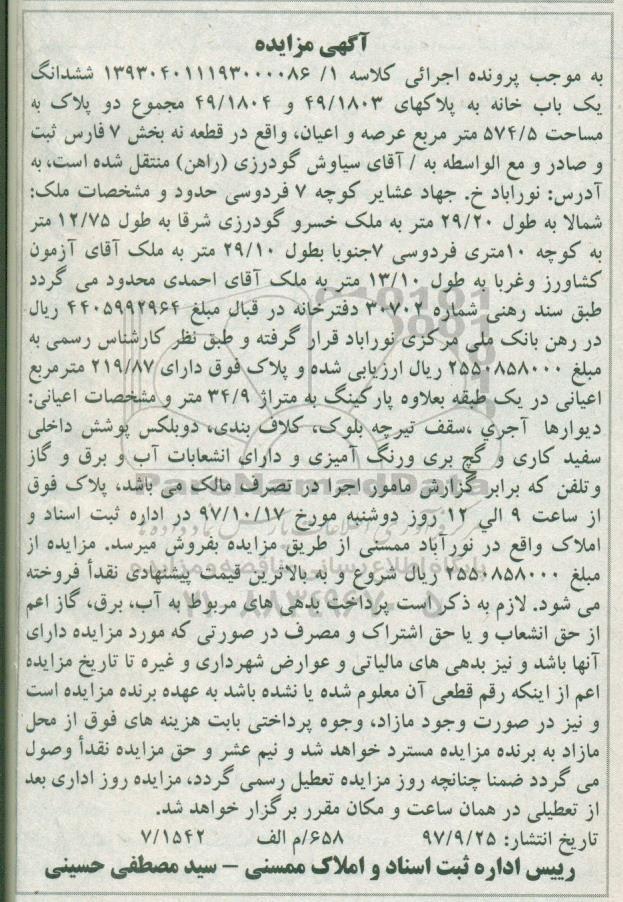 آگهی مزایده
به موجب پرونده اجرائی کلاسه ۱/ ۱۳۹۳۰۴۰۱۱۱۹۳۰۰۰۰۸۶ ششدانگ
یک باب خانه به پلاکهای ۴۹/۱۸۰۳ و ۴۹/۱۸۰۴ مجموع دو پلاک به
مساحت ۵۷۴/۵ متر مربع عرصه و اعیان، واقع در قطعه نه بخش ۷ فارس ثبت
و صادر و مع الواسطه به / آقای سیاوش گودرزی (راهن) منتقل شده است، به
آدرس: نوراباد خ. جهاد عشایر کوچه ۷ فردوسی حدود و مشخصات ملک:
شمالا به طول ۲۹/۲۰ متر به ملک خسرو گودرزی شرقا به طول ۱۲/۷۵ متر
به کوچه ۱۰متری فردوسی ۷جنوبا بطول ۲۹/۱۰ متر به ملک آقای آزمون
کشاورز وغربا به طول ۱۳/۱۰ متر به ملک آقای احمدی محدود می گردد
طبق سند رهنی شماره ۳۰۷۰۲ دفترخانه در قبال مبلغ ۴۴۰۵۹۹۲۹۶۴ ریال
در رهن بانک ملی مرکزی نوراباد قرار گرفته و طبق نظر کارشناس رسمی به
مبلغ ۲۵۵۰۸۵۸۰۰۰ ریال ارزیابی شده و پلاک فوق دارای ۲۱۹/۸۷ مترمربع
اعیانی در یک طبقه بعلاوه پارکینگ به متراژ ۳۴/۹ متر و مشخصات اعیانی:
دیوارها آجري ،سقف تیرچه بلوک، کلاف بندی، دوبلکس پوشش داخلی
سفید کاری و گچ بری ورنگ آمیزی و دارای انشعابات آب و برق و گاز
وتلفن که برابر گزارش مامور اجرا در تصرف مالک می باشد، پلاک فوق
از ساعت ۹ الی ۱۲ روز دوشنبه مورخ ۹۷/۱۰/۱۷ در اداره ثبت اسناد و
املاک واقع در نورآباد ممسنی از طریق مزایده بفروش میرسد. مزایده از
مبلغ ۲۵۵۰۸۵۸۰۰۰ ریال شروع و به بالاترین قیمت پیشنهادی نقدأ فروخته
می شود. لازم به ذکر است پرداخت بدهی های مربوط به آب، برق، گاز اعم
از حق انشعاب و یا حق اشتراک و مصرف در صورتی که مورد مزایده دارای
آنها باشد و نیز بدهی های مالیاتی و عوارض شهرداری و غیره تا تاریخ مزایده
اعم از اینکه رقم قطعی آن معلوم شده یا نشده باشد به عهده برنده مزایده است
و نیز در صورت وجود مازاد، وجوه پرداختی بابت هزینه های فوق از محل
مازاد به برنده مزایده مسترد خواهد شد و نیم عشر و حق مزایده نقدأ وصول
می گردد ضمنا چنانچه روز مزایده تعطیل رسمی گردد، مزایده روز اداری بعد
از تعطیلی در همان ساعت و مکان مقرر برگزار خواهد شد.
تاریخ انتشار: ۹۷/۹/۲۵ ۶۵۸/م الف ۷/۱۵۴۲
رییس اداره ثبت اسناد و املاک ممسنی – سید مصطفی حسینی
ParsNamadData
پایگاه اطلاع رسانی مناقصه و مزایده